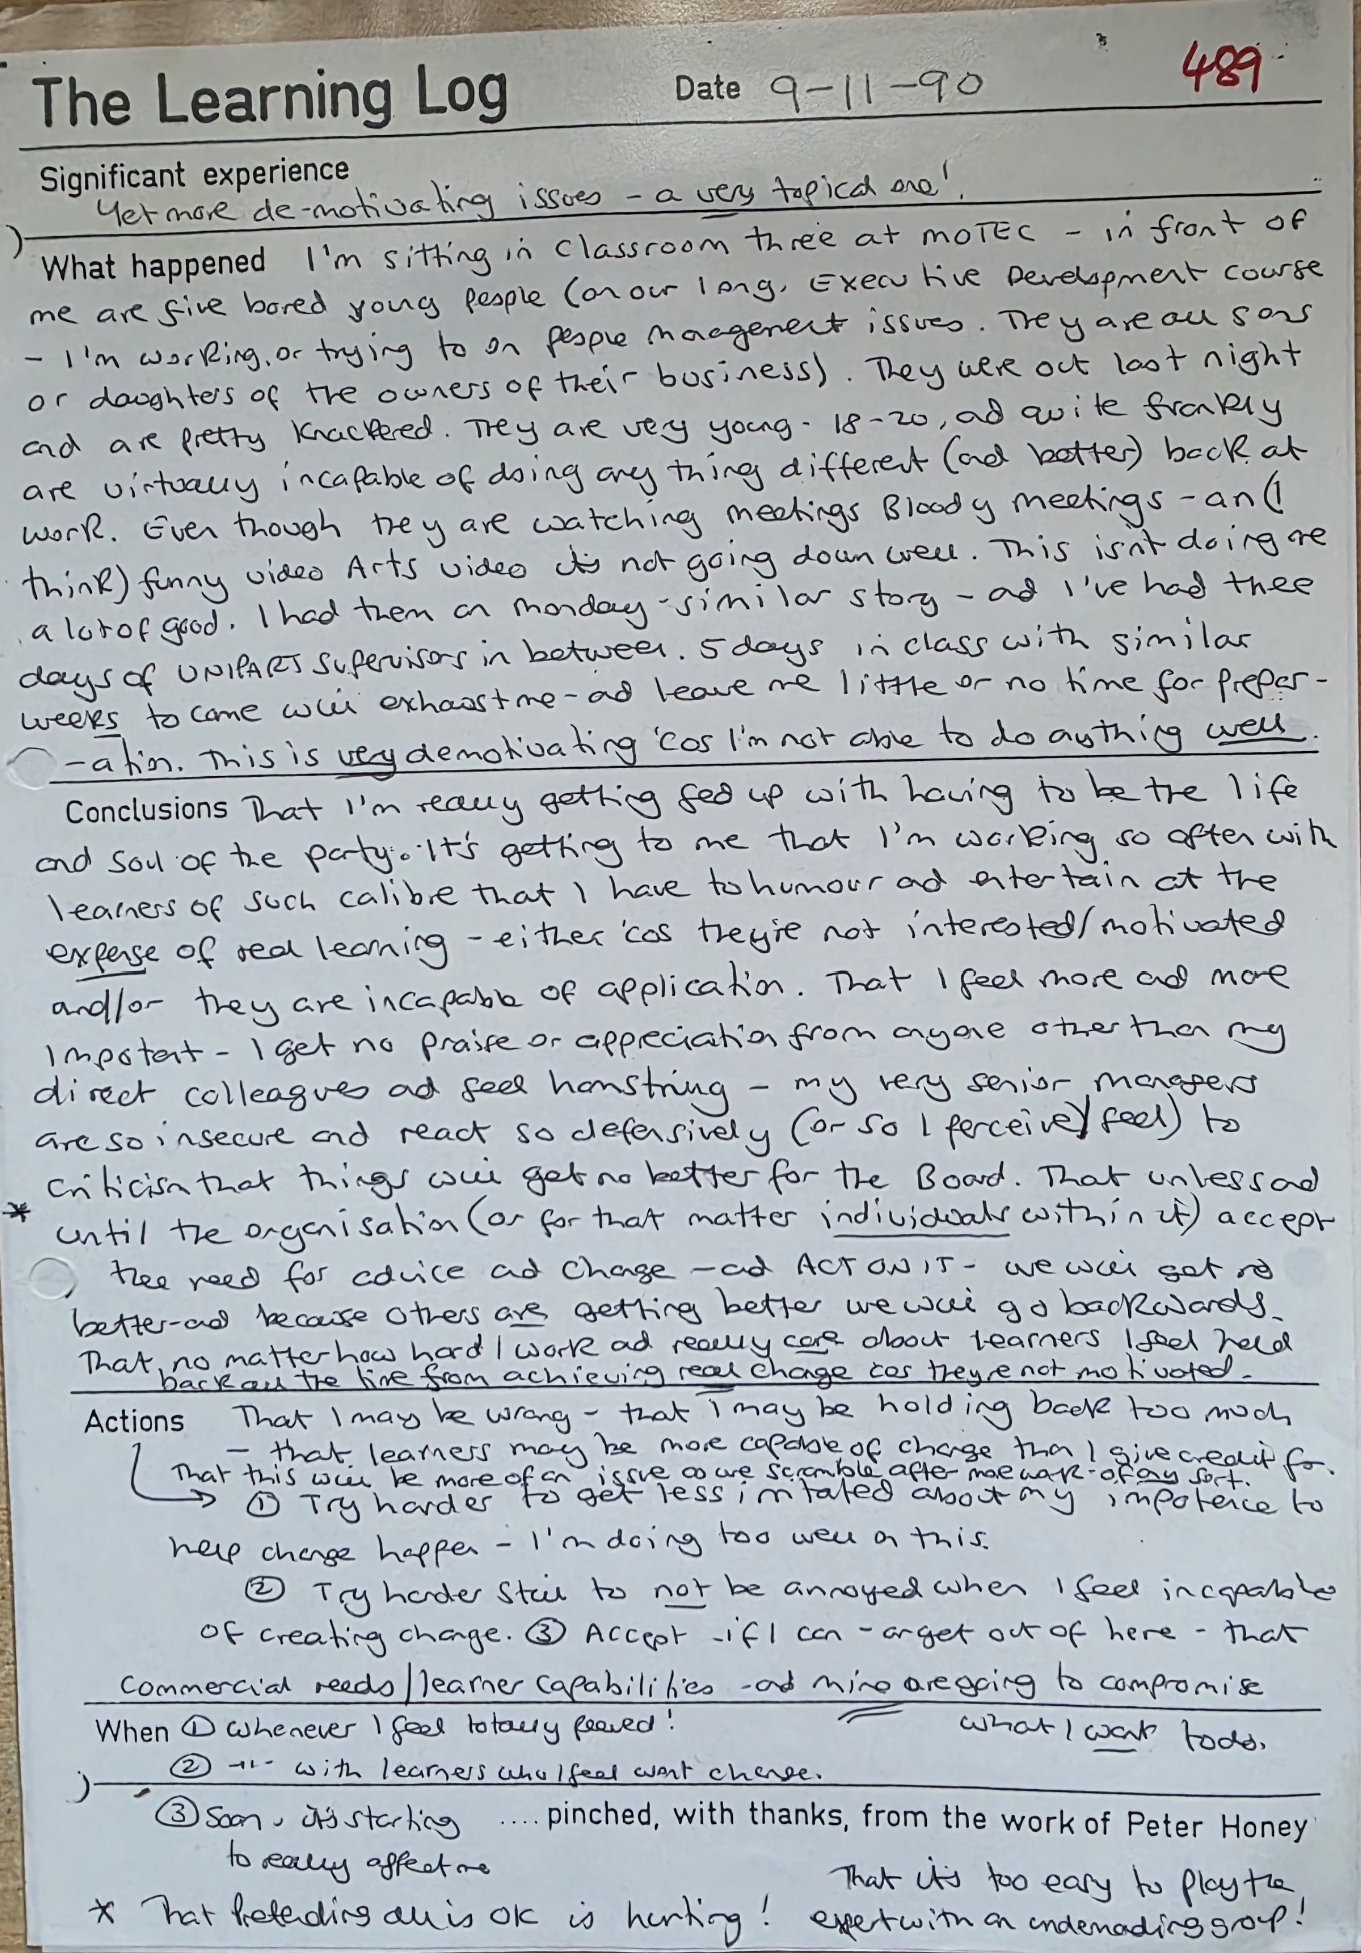 The Learning Log Date 9-11-90 489
Significant experience
Yet more de-motivating issues - a very topical one!
What happened I'm sitting in classroom three at MOTEC - in front of
me are five bored young people (on our long, Executive Development course
- I'm working, or trying to on people management issues. They are all sons
or daughters of the owners of their business). They were out last night
and are pretty knackered. They are very young - 18-20, ad quite frankly
are virtually incapable of doing any thing different (and better) back at
work. Even though they are watching meetings Bloody meetings - an (I
think) funny video Arts video it's not going down well. This isn't doing me
a lot of good. I had them on monday - similar story - ad I've had three
days of UNIPART supervisors in between. 5 days in class with similar
weeks to come will exhaust me - ad leave me little or no time for prepar-
-ation. This is very demotivating 'cos I'm not able to do anything well.
Conclusions That I'm really getting fed up with having to be the life
and soul of the party. It's getting to me that I'm working so often with
learners of such calibre that I have to humour ad entertain at the
expense of real learning - either 'cos they're not interested/motivated
and/or they are incapable of application. That I feel more and more
impotent - I get no praise or appreciation from anyone other than my
direct colleagues ad feel hamstring - my very senior managers
are so insecure and react so defensively (or so I perceive/feel) to
criticism that things will get no better for the Board. That unless ad
* until the organisation (or for that matter individuals within it) accept
thee need for advice ad change - ad ACT ON IT - we will get no
better - ad because others are getting better we will go backwards.
That, no matter how hard I work ad really care about learners I feel held
back all the time from achieving real change cos they're not motivated.
Actions That I may be wrong - that I may be holding back too much
- that learners may be more capable of change than I give credit for.
That this will be more of an issue as we scramble after more work - of any sort.
① Try harder to get less irritated about my impotence to
help change happen - I'm doing too well on this.
② Try harder still to not be annoyed when I feel incapable
of creating change. ③ Accept - if I can - or get out of here - that
Commercial needs/learner capabilities - ad mine are going to compromise
what I want to do.
When ① Whenever I feel totally peeved!
② -"- with learners who I feel want change.
③ Soon, it's starting .... pinched, with thanks, from the work of Peter Honey
to really affect me
* That Pretending all is OK is hurting! That it's too easy to play the
expert with an undemanding group!